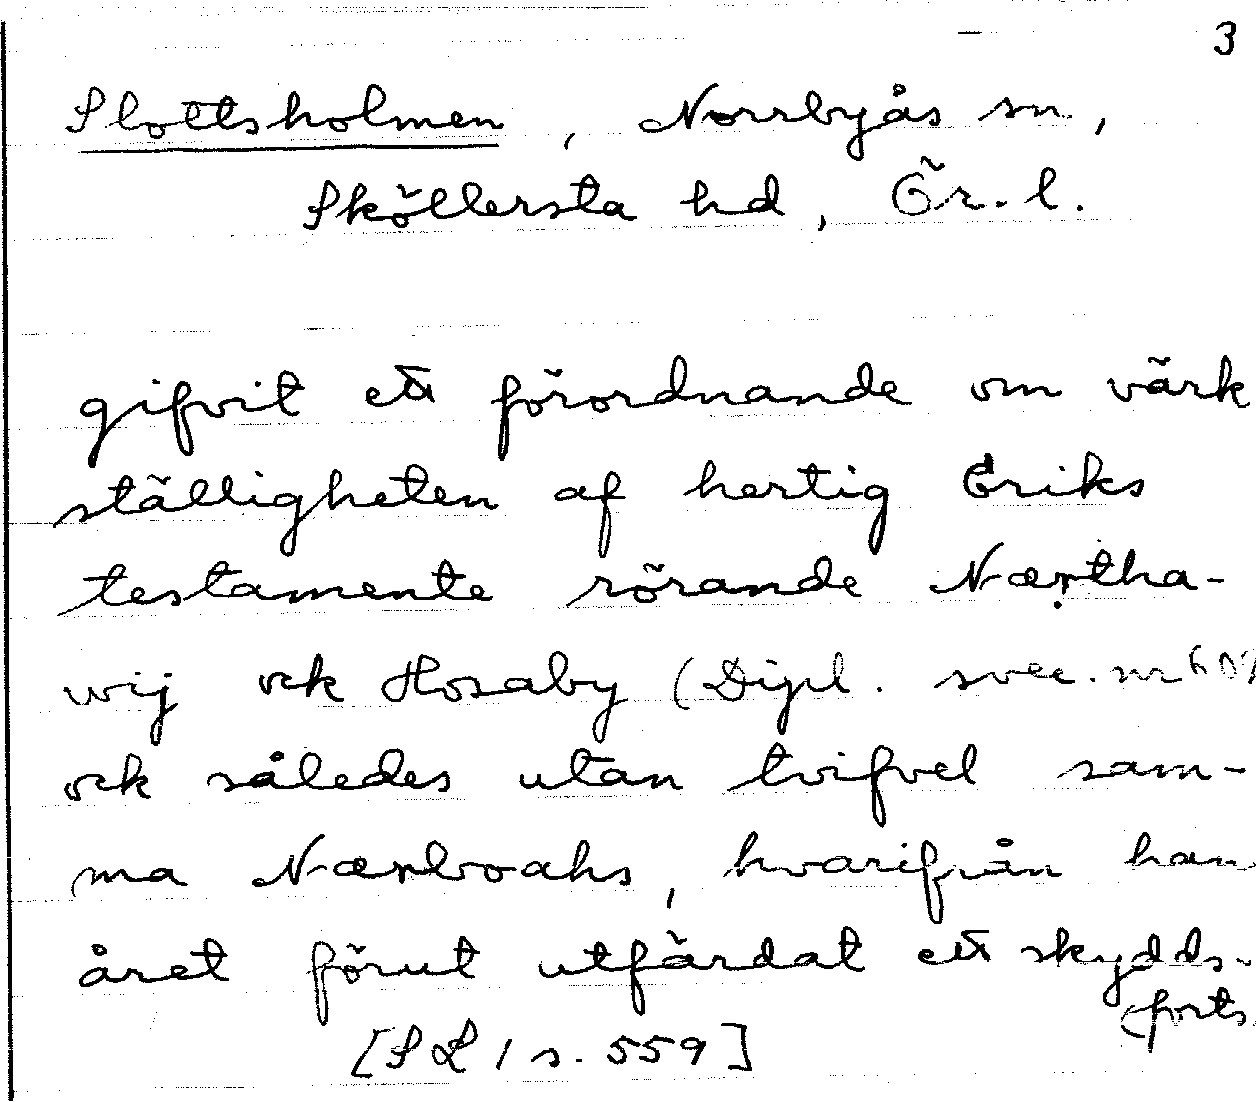 3
Slottsholmen, Norrbyås sn,
Sköllersta hd, Ör. l.
gifvit ett förordnande om värk
ställigheten af hertig Eriks
testamente rörande Nærtha-
wij ock Hosaby (Dipl. svec. nr
ock således utan tvifvel sam-
ma Nærboahs, hvarifrån han
året förut utfärdat ett skydds-
(forts.
[SL 1 s. 559]